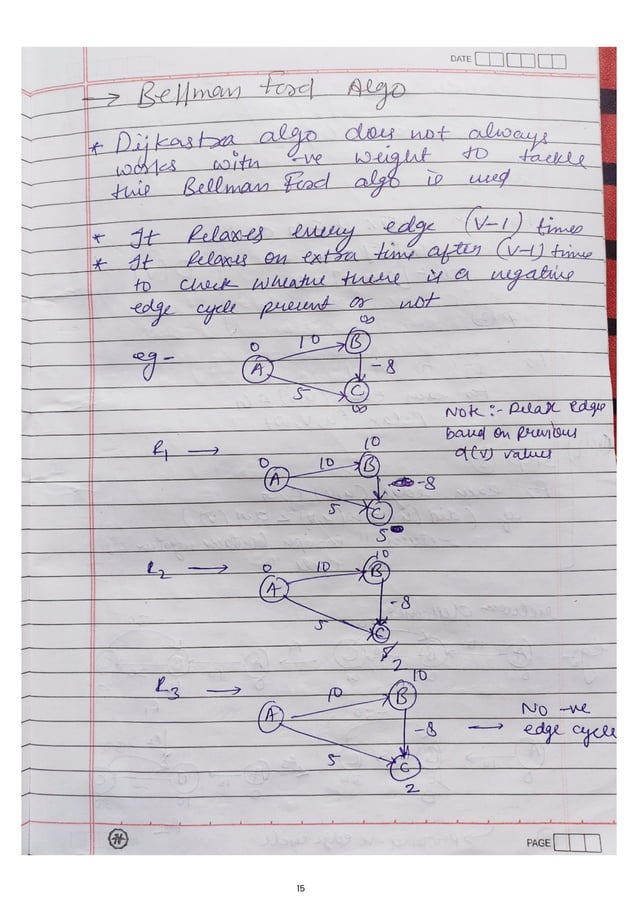 DATE
→ Bellman Ford Algo
* Dijkastra algo does not always
works with -ve weight to tackle
this Bellman Ford algo is used
* It Relaxes every edge (V-1) times
* It Relaxes on extra time after (V-1) time
to check wheathe there is a negative
edge cycle present or not
eg -
0
A
10
∞
B
-8
5
C
∞
Note :- Relax edges
based on previous
d(v) values
R1 →
0
A
10
10
B
-8
5
C
5
R2 →
0
A
10
10
B
-8
5
C
5
2
R3 →
A
10
10
B
-8
5
C
2
→ No -ve
edge cycle
PAGE
15